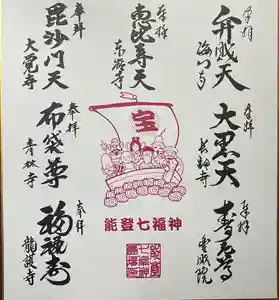 奉拝
弁財天
海門寺
奉拝
大黒天
奉拝
寿老尊
宝泉院
奉拝
恵比寿天
宝
能登七福神
奉拝
毘沙門天
大覚寺
奉拝
布袋尊
青林寺
奉拝
福禄寿
龍護寺